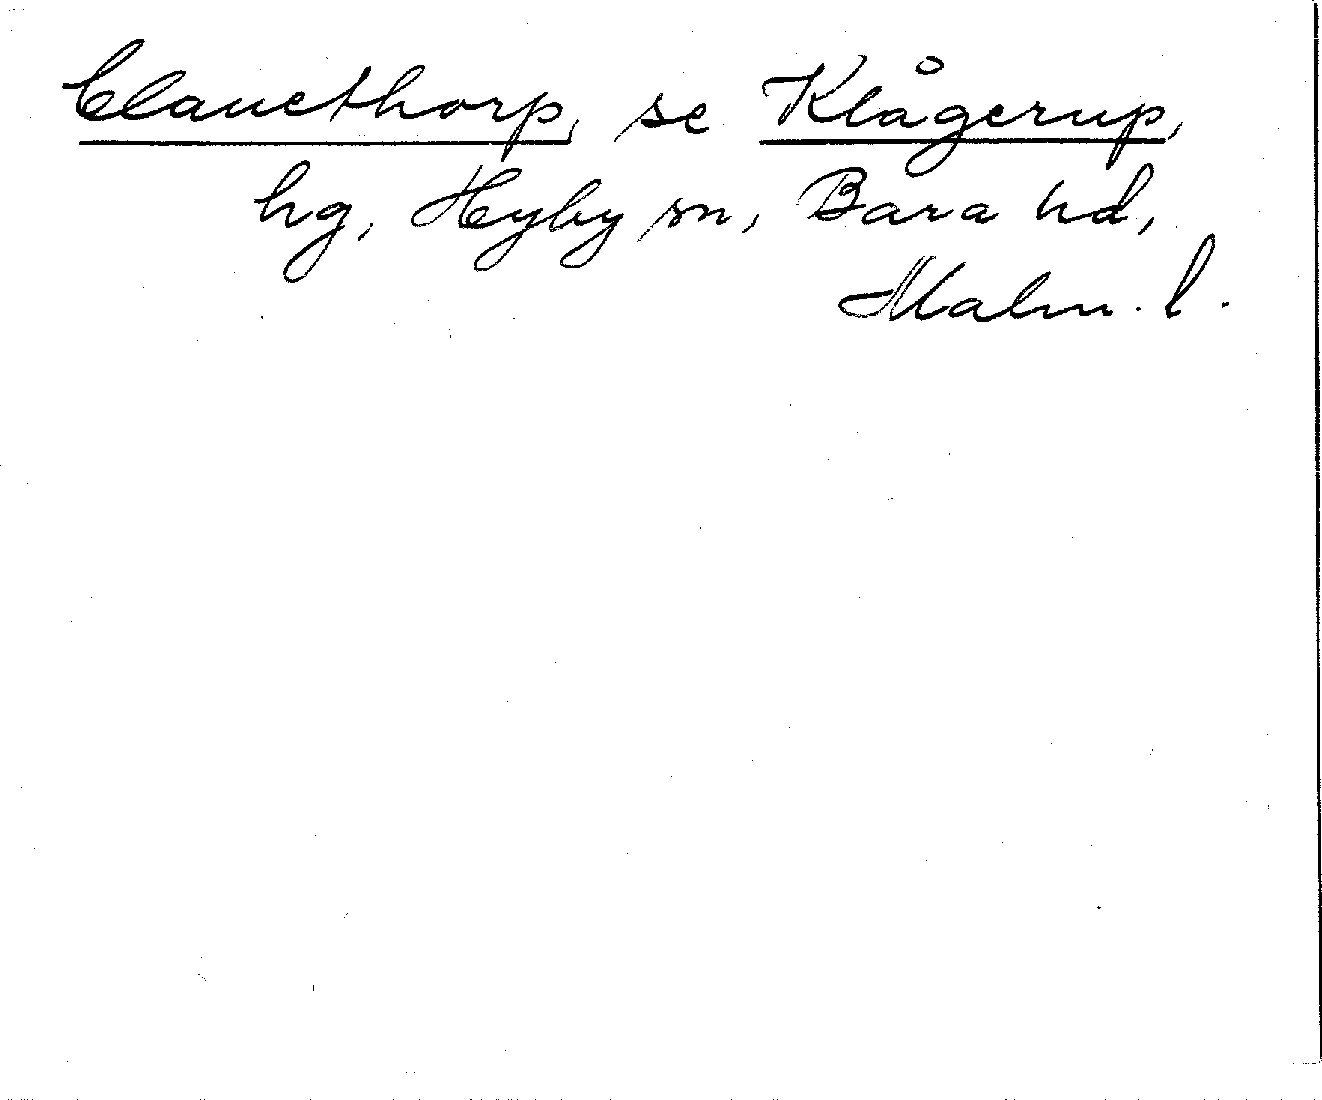 Clauethorp, se Klågerup,
hg, Hyby sn, Bara hd,
Malm. l.